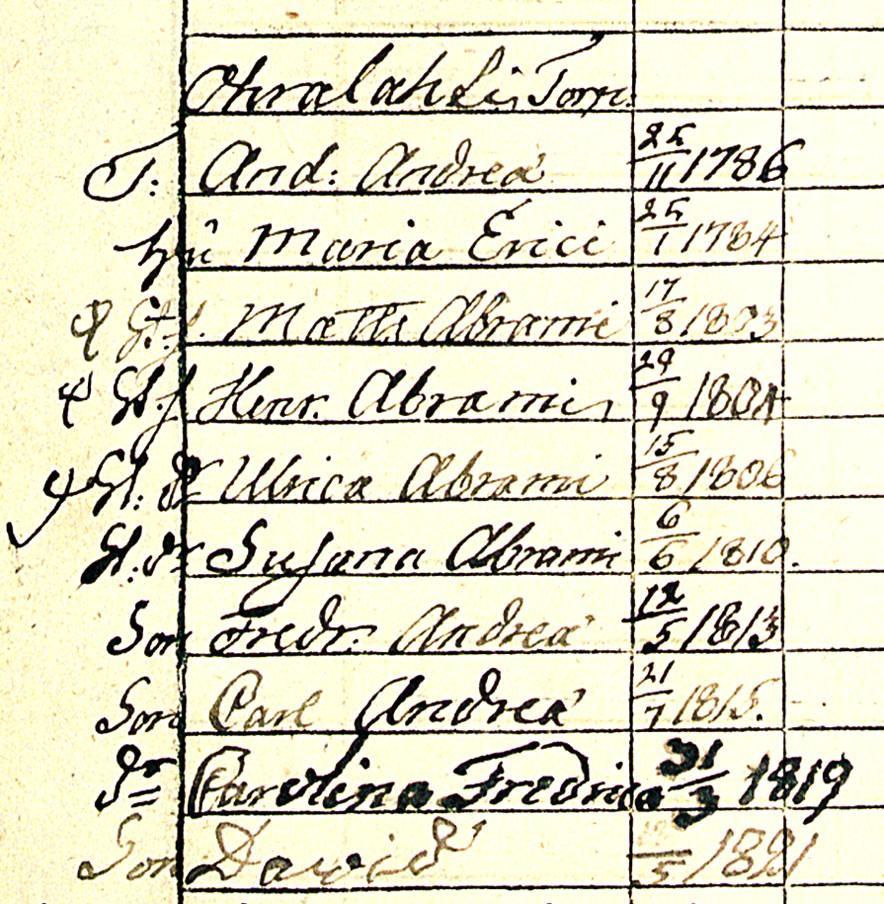 Ohralaht Li, Torp.
T: And: Andreæ 25/11 1786
hu Maria Erici 25/1 1784
St. f. Matts Abrami 17/8 1803
St. f Henr. Abrami 29/9 1804
St: dr Ulrica Abrami 15/8 1806
St: dr Susana Abrami 6/6 1810.
Son Fredr. Andreæ 12/5 1813
Son Carl Andreæ 21/7 1815.
dr Carolina Fredrica 31/3 1819
Son David /5 1821